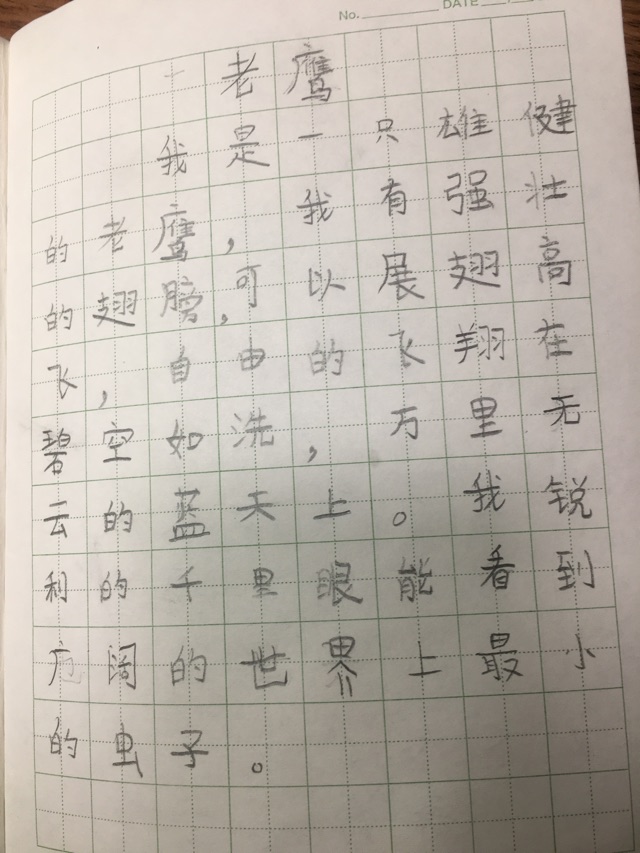 No. DATE
老鹰
我是一只雄健
的老鹰，我有强壮
的翅膀，可以展翅高
飞，自由的飞翔在
碧空如洗，万里无
云的蓝天上。我锐
利的千里眼能看到
广阔的世界上最小
的虫子。